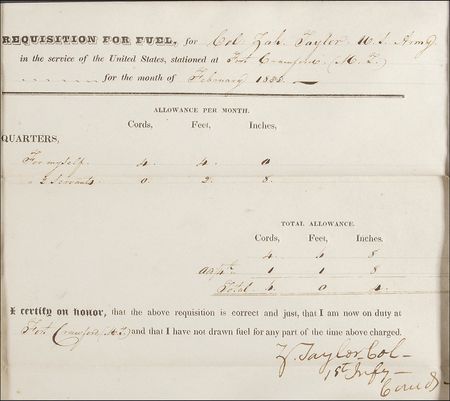 REQUISITION FOR FUEL, for Col Zah. Taylor U.S. Army
in the service of the United States, stationed at Fort Crawford (M.T.)
for the month of February 1835.
ALLOWANCE PER MONTH.
Cords, Feet, Inches,
QUARTERS,
For myself. 4. 4. 0
" 2 Servants. 0. 2. 8.
TOTAL ALLOWANCE.
Cords, Feet, Inches.
4 8
1 1 8
Total 6 0 4
I certify on honor, that the above requisition is correct and just, that I am now on duty at
Fort Crawford (M.T.) and that I have not drawn fuel for any part of the time above charged.
Z. Taylor Col
1st Infy
Comd